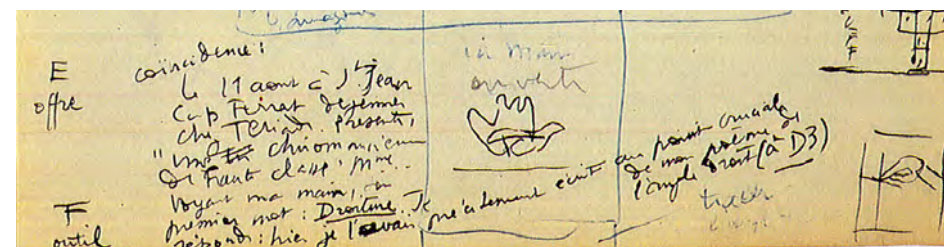 E
offre
coïncidence :
Le 11 aout à St Jean
Cap Ferrat dejeuner
chez Tériade. Présente,
"une chiromancienne
de haut classe" Mme..
Voyant ma main, un
premier mot : Droiture. Je
réponds : hier je l'avais précisement écrit au point crucial
de mon poème de
l'angle droit (à D3)
la main
ouverte
F
outil